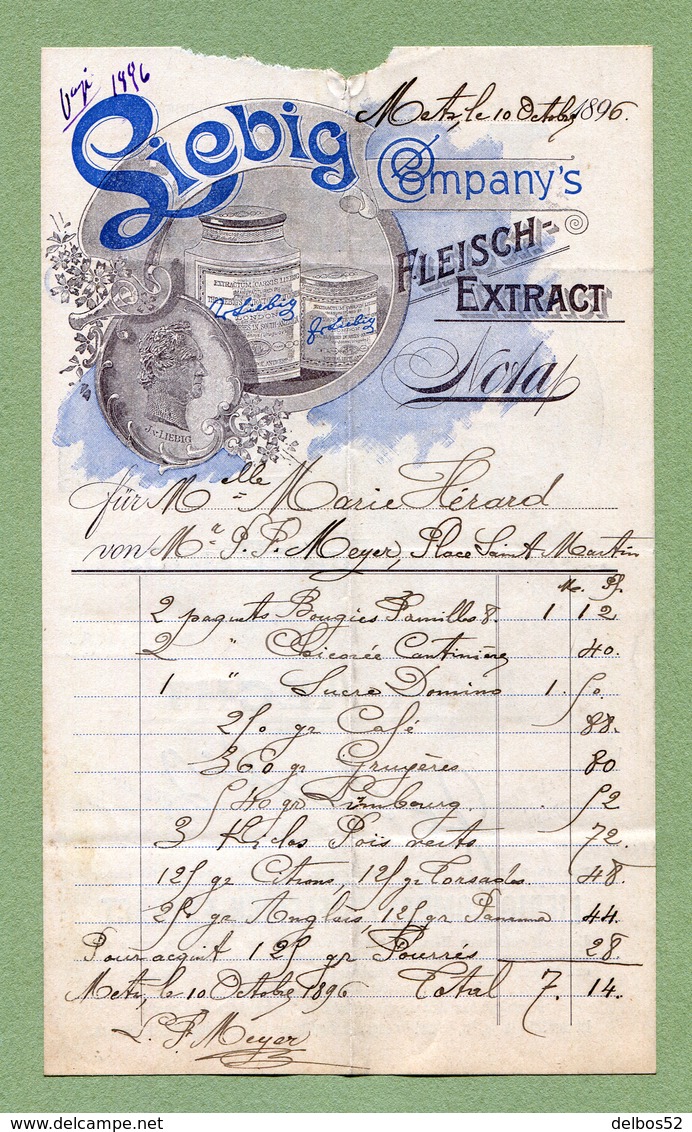 1896
Metz, le 10 Octobre 1896.
Liebig
Company's
FLEISCH-
EXTRACT
EXTRACTUM CARNIS LIEBIG
LONDON
J v Liebig
J v Liebig
J.v. LIEBIG
Nota
für Melle Marie Hérard
von Mr P. F. Meyer, Place Saint Martin
M. Pf.
2 paquets Bougies Familles 8. 1 12
2 " Chicorée Cantinière 40.
1 " Sucre Domino 1. 50
250 gr Café 88.
360 gr Gruyères 80
540 gr Limbourg 52
3 Kilos Pois verts 72.
125 gr Citrons, 125 gr Torsades 48.
25 gr Anglais, 125 gr Panama 44
Pour acquit 125 gr Fourrés 28
Metz, le 10 Octobre 1896 Total 7. 14.
P. F. Meyer
delcampe.net
delbos52